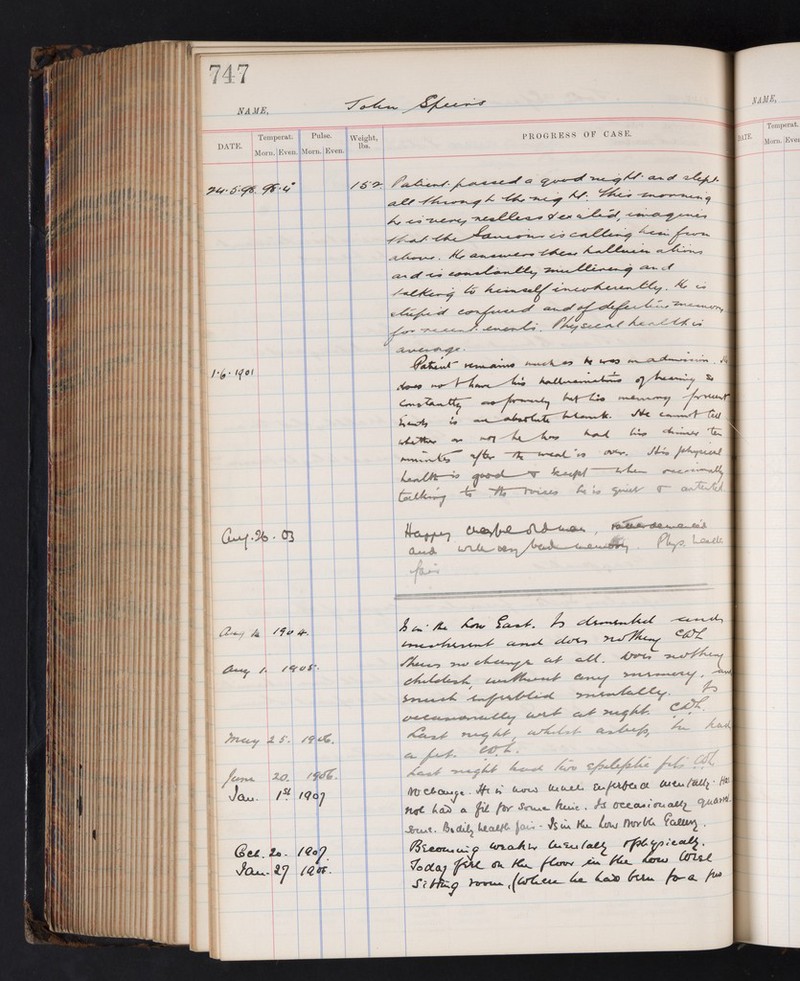 747
NAME, John Speirs
DATE. Temperat. Pulse. Weight, lbs. PROGRESS OF CASE.
Morn. Even. Morn. Even.
24.5.98. 98.4° 152 Patient passed a good night and slept
all through the night. This morning
he is very restless & excited, imagines
that the Saviour is calling him from
above. He answers these hallucinations
and is constantly muttering and
talking to himself incoherently. He is
stupid confused and of defective memory
for recent events. Physical health is
average.
1.6.1901 Patient remains much as he was on admission. He
does not have his hallucinations of hearing so
constantly as formerly but his memory for recent
events is an absolute blank. He cannot tell
whether or not he has had his dinner ten
minutes after the meal is over. His physical
health is good & except when occasionally
talking to the voices he is quiet & contented
Aug. 26. 03 Happy old man,
and with very bad memory. Phys. health
fair
Aug 12 1904. Is in the Low East. Is demented and
incoherent and does nothing
Aug 1. 1905. Shews no change at all. Does nothing
childish, without any memory, and
much enfeebled mentally. Is
occasionally wet at night.
May 25. 1906. Last night, whilst asleep, he had
a fit.
June 20. 1906. Last night had two epileptic fits
Jan. 1st 1907 No change. He is now much enfeebled mentally. Has
not had a fit for some time. Is occasionally quarrel-
some. Bodily health fair - Is in the Low North Gallery.
Oct. 20. 1907. Becoming weaker mentally & physically.
Jan. 27 1908. Today fell on the floor in the Low West
Sitting room, (where he had been for a few
NAME,
DATE. Temperat.
Morn. Even